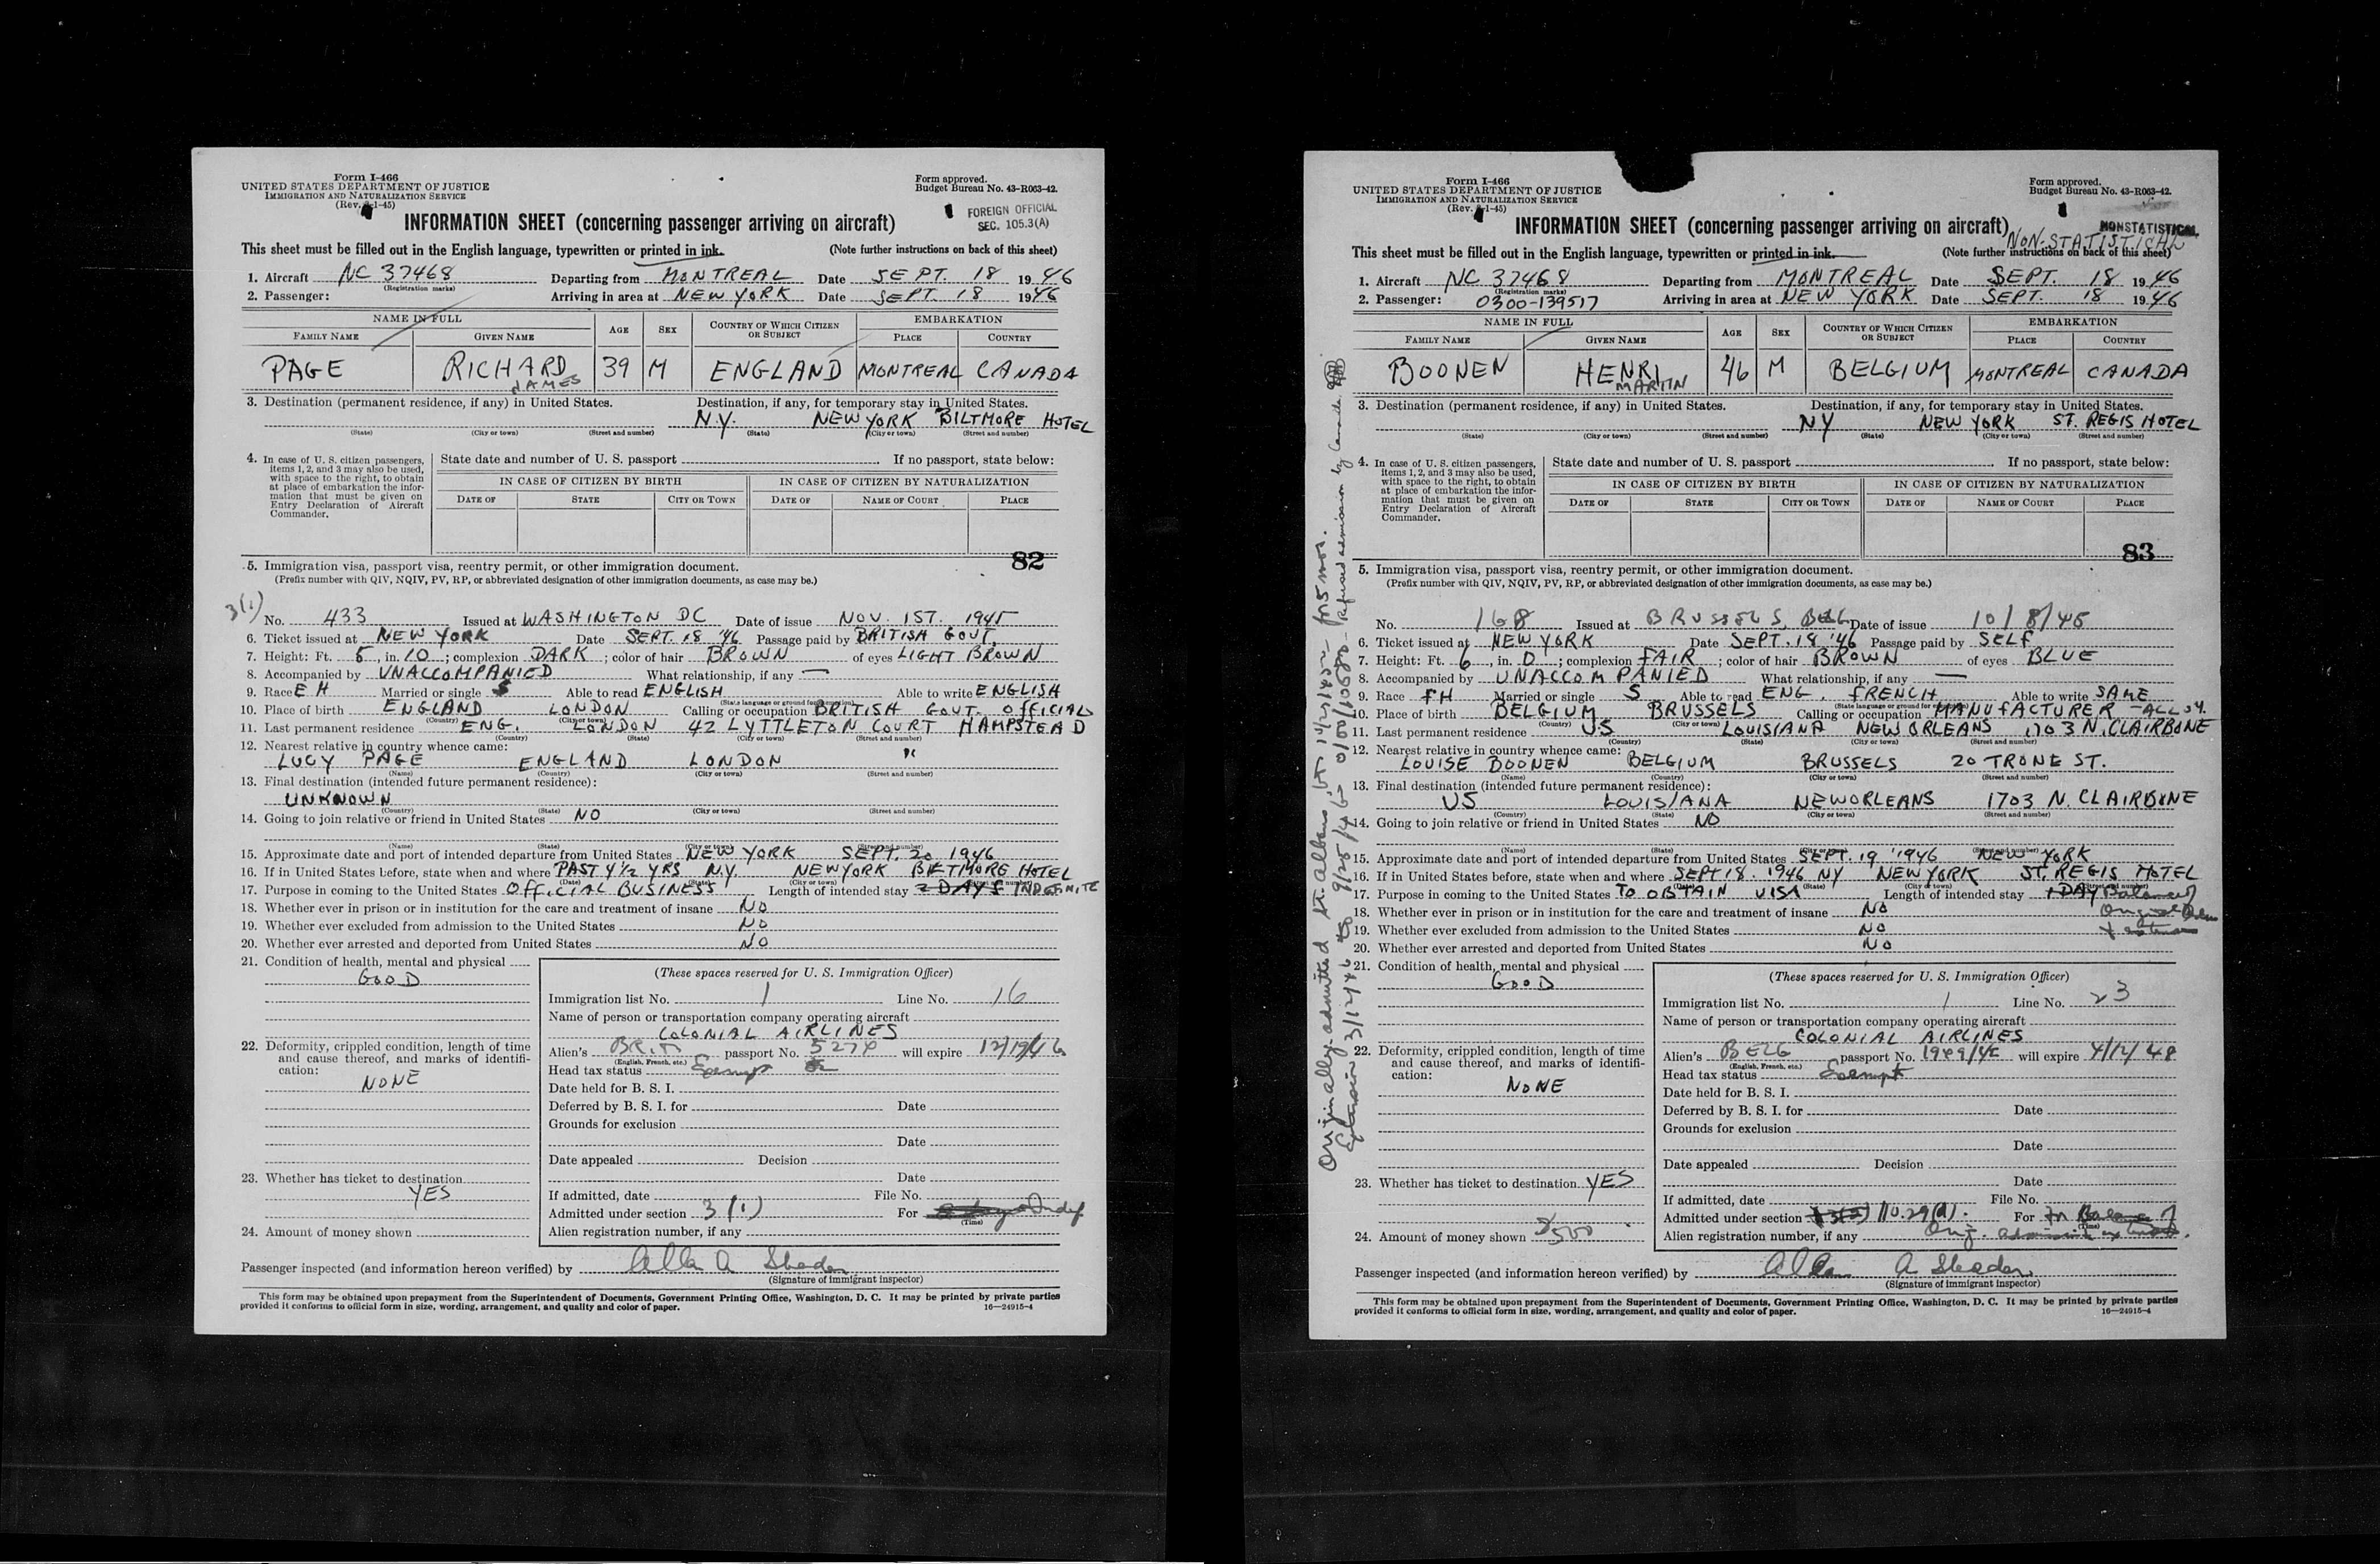 Form I-466
UNITED STATES DEPARTMENT OF JUSTICE
IMMIGRATION AND NATURALIZATION SERVICE
(Rev. -1-45)
Form approved.
Budget Bureau No. 43-R063-42.
INFORMATION SHEET (concerning passenger arriving on aircraft)
FOREIGN OFFICIAL
SEC. 105.3(A)
This sheet must be filled out in the English language, typewritten or printed in ink. (Note further instructions on back of this sheet)
1. Aircraft NC 37468 Departing from MONTREAL Date SEPT. 18 1946
(Registration marks)
2. Passenger: Arriving in area at NEW YORK Date SEPT. 18 1946
NAME IN FULL AGE SEX COUNTRY OF WHICH CITIZEN OR SUBJECT EMBARKATION
FAMILY NAME GIVEN NAME PLACE COUNTRY
PAGE RICHARD JAMES 39 M ENGLAND MONTREAL CANADA
3. Destination (permanent residence, if any) in United States. Destination, if any, for temporary stay in United States.
N.Y. NEW YORK BILTMORE HOTEL
(State) (City or town) (Street and number) (State) (City or town) (Street and number)
4. In case of U. S. citizen passengers, items 1, 2, and 3 may also be used, with space to the right, to obtain at place of embarkation the information that must be given on Entry Declaration of Aircraft Commander.
State date and number of U. S. passport If no passport, state below:
IN CASE OF CITIZEN BY BIRTH IN CASE OF CITIZEN BY NATURALIZATION
DATE OF STATE CITY OR TOWN DATE OF NAME OF COURT PLACE
82
5. Immigration visa, passport visa, reentry permit, or other immigration document.
(Prefix number with QIV, NQIV, PV, RP, or abbreviated designation of other immigration documents, as case may be.)
3(1)
No. 433 Issued at WASHINGTON DC Date of issue NOV. 1ST. 1945
6. Ticket issued at NEW YORK Date SEPT. 18 '46 Passage paid by BRITISH GOVT.
7. Height: Ft. 5, in. 10; complexion DARK; color of hair BROWN of eyes LIGHT BROWN
8. Accompanied by UNACCOMPANIED What relationship, if any —
9. Race EH Married or single S Able to read ENGLISH Able to write ENGLISH
10. Place of birth ENGLAND LONDON Calling or occupation BRITISH GOVT. OFFICIAL
11. Last permanent residence ENG. LONDON 42 LYTTLETON COURT HAMPSTEAD
12. Nearest relative in country whence came:
LUCY PAGE ENGLAND LONDON "
(Name) (Country) (City or town) (Street and number)
13. Final destination (intended future permanent residence):
UNKNOWN
(Country) (State) (City or town) (Street and number)
14. Going to join relative or friend in United States NO
(Name) (State) (City or town) (Street and number)
15. Approximate date and port of intended departure from United States NEW YORK SEPT. 20 1946
16. If in United States before, state when and where PAST 4 1/2 YRS N.Y. NEW YORK BILTMORE HOTEL
17. Purpose in coming to the United States OFFICIAL BUSINESS Length of intended stay 2 DAYS INDEFINITE
18. Whether ever in prison or in institution for the care and treatment of insane NO
19. Whether ever excluded from admission to the United States NO
20. Whether ever arrested and deported from United States NO
21. Condition of health, mental and physical
GOOD
22. Deformity, crippled condition, length of time and cause thereof, and marks of identification:
NONE
23. Whether has ticket to destination
YES
24. Amount of money shown
(These spaces reserved for U. S. Immigration Officer)
Immigration list No. 1 Line No. 16
Name of person or transportation company operating aircraft
COLONIAL AIRLINES
Alien's BRIT passport No. will expire
(English, French, etc.)
Head tax status Exempt
Date held for B. S. I.
Deferred by B. S. I. for Date
Grounds for exclusion
Date
Date appealed Decision
Date
If admitted, date File No.
Admitted under section 3(1) For Indef
(Time)
Alien registration number, if any
Passenger inspected (and information hereon verified) by
(Signature of immigrant inspector)
This form may be obtained upon prepayment from the Superintendent of Documents, Government Printing Office, Washington, D. C. It may be printed by private parties
provided it conforms to official form in size, wording, arrangement, and quality and color of paper. 16—24915-4
Form I-466
UNITED STATES DEPARTMENT OF JUSTICE
IMMIGRATION AND NATURALIZATION SERVICE
(Rev. -1-45)
Form approved.
Budget Bureau No. 43-R063-42.
INFORMATION SHEET (concerning passenger arriving on aircraft)
NONSTATISTICAL
NON-STATISTICAL
This sheet must be filled out in the English language, typewritten or printed in ink. (Note further instructions on back of this sheet)
1. Aircraft NC 37468 Departing from MONTREAL Date SEPT. 18 1946
(Registration marks)
2. Passenger: 0300-139517 Arriving in area at NEW YORK Date SEPT. 18 1946
NAME IN FULL AGE SEX COUNTRY OF WHICH CITIZEN OR SUBJECT EMBARKATION
FAMILY NAME GIVEN NAME PLACE COUNTRY
BOONEN HENRI MARTIN 46 M BELGIUM MONTREAL CANADA
3. Destination (permanent residence, if any) in United States. Destination, if any, for temporary stay in United States.
NY NEW YORK ST. REGIS HOTEL
(State) (City or town) (Street and number) (State) (City or town) (Street and number)
4. In case of U. S. citizen passengers, items 1, 2, and 3 may also be used, with space to the right, to obtain at place of embarkation the information that must be given on Entry Declaration of Aircraft Commander.
State date and number of U. S. passport If no passport, state below:
IN CASE OF CITIZEN BY BIRTH IN CASE OF CITIZEN BY NATURALIZATION
DATE OF STATE CITY OR TOWN DATE OF NAME OF COURT PLACE
83
5. Immigration visa, passport visa, reentry permit, or other immigration document.
(Prefix number with QIV, NQIV, PV, RP, or abbreviated designation of other immigration documents, as case may be.)
No. 168 Issued at BRUSSELS, BELG Date of issue 10/8/45
6. Ticket issued at NEW YORK Date SEPT. 18 '46 Passage paid by SELF
7. Height: Ft. 6, in. 0; complexion FAIR; color of hair BROWN of eyes BLUE
8. Accompanied by UNACCOMPANIED What relationship, if any —
9. Race FH Married or single S Able to read ENG. FRENCH Able to write SAME
10. Place of birth BELGIUM BRUSSELS Calling or occupation MANUFACTURER
11. Last permanent residence US LOUISIANA NEW ORLEANS 1703 N. CLAIRBONE
(Country) (State) (City or town) (Street and number)
12. Nearest relative in country whence came:
LOUISE BOONEN BELGIUM BRUSSELS 20 TRONE ST.
(Name) (Country) (City or town) (Street and number)
13. Final destination (intended future permanent residence):
US LOUISIANA NEW ORLEANS 1703 N. CLAIRBONE
(Country) (State) (City or town) (Street and number)
14. Going to join relative or friend in United States NO
(Name) (State) (City or town) (Street and number)
15. Approximate date and port of intended departure from United States SEPT. 19 '1946 NEW YORK
16. If in United States before, state when and where SEPT 18. 1946 NY NEW YORK ST. REGIS HOTEL
17. Purpose in coming to the United States TO OBTAIN VISA Length of intended stay 1 DAY Balance of
18. Whether ever in prison or in institution for the care and treatment of insane NO
19. Whether ever excluded from admission to the United States NO
20. Whether ever arrested and deported from United States NO
21. Condition of health, mental and physical
GOOD
22. Deformity, crippled condition, length of time and cause thereof, and marks of identification:
NONE
23. Whether has ticket to destination YES
24. Amount of money shown
(These spaces reserved for U. S. Immigration Officer)
Immigration list No. 1 Line No. 23
Name of person or transportation company operating aircraft
COLONIAL AIRLINES
Alien's BELG passport No. will expire 4/12/48
(English, French, etc.)
Head tax status Exempt
Date held for B. S. I.
Deferred by B. S. I. for Date
Grounds for exclusion
Date
Date appealed Decision
Date
If admitted, date File No.
Admitted under section 110.29(d). For Balance of
(Time)
Alien registration number, if any Orig. admission
Passenger inspected (and information hereon verified) by
(Signature of immigrant inspector)
This form may be obtained upon prepayment from the Superintendent of Documents, Government Printing Office, Washington, D. C. It may be printed by private parties
provided it conforms to official form in size, wording, arrangement, and quality and color of paper. 16—24915-4
Originally admitted St. Albans, Vt. for 5 mos.
Extension 3/12/46 to 9/25/46 Refused admission by Canada